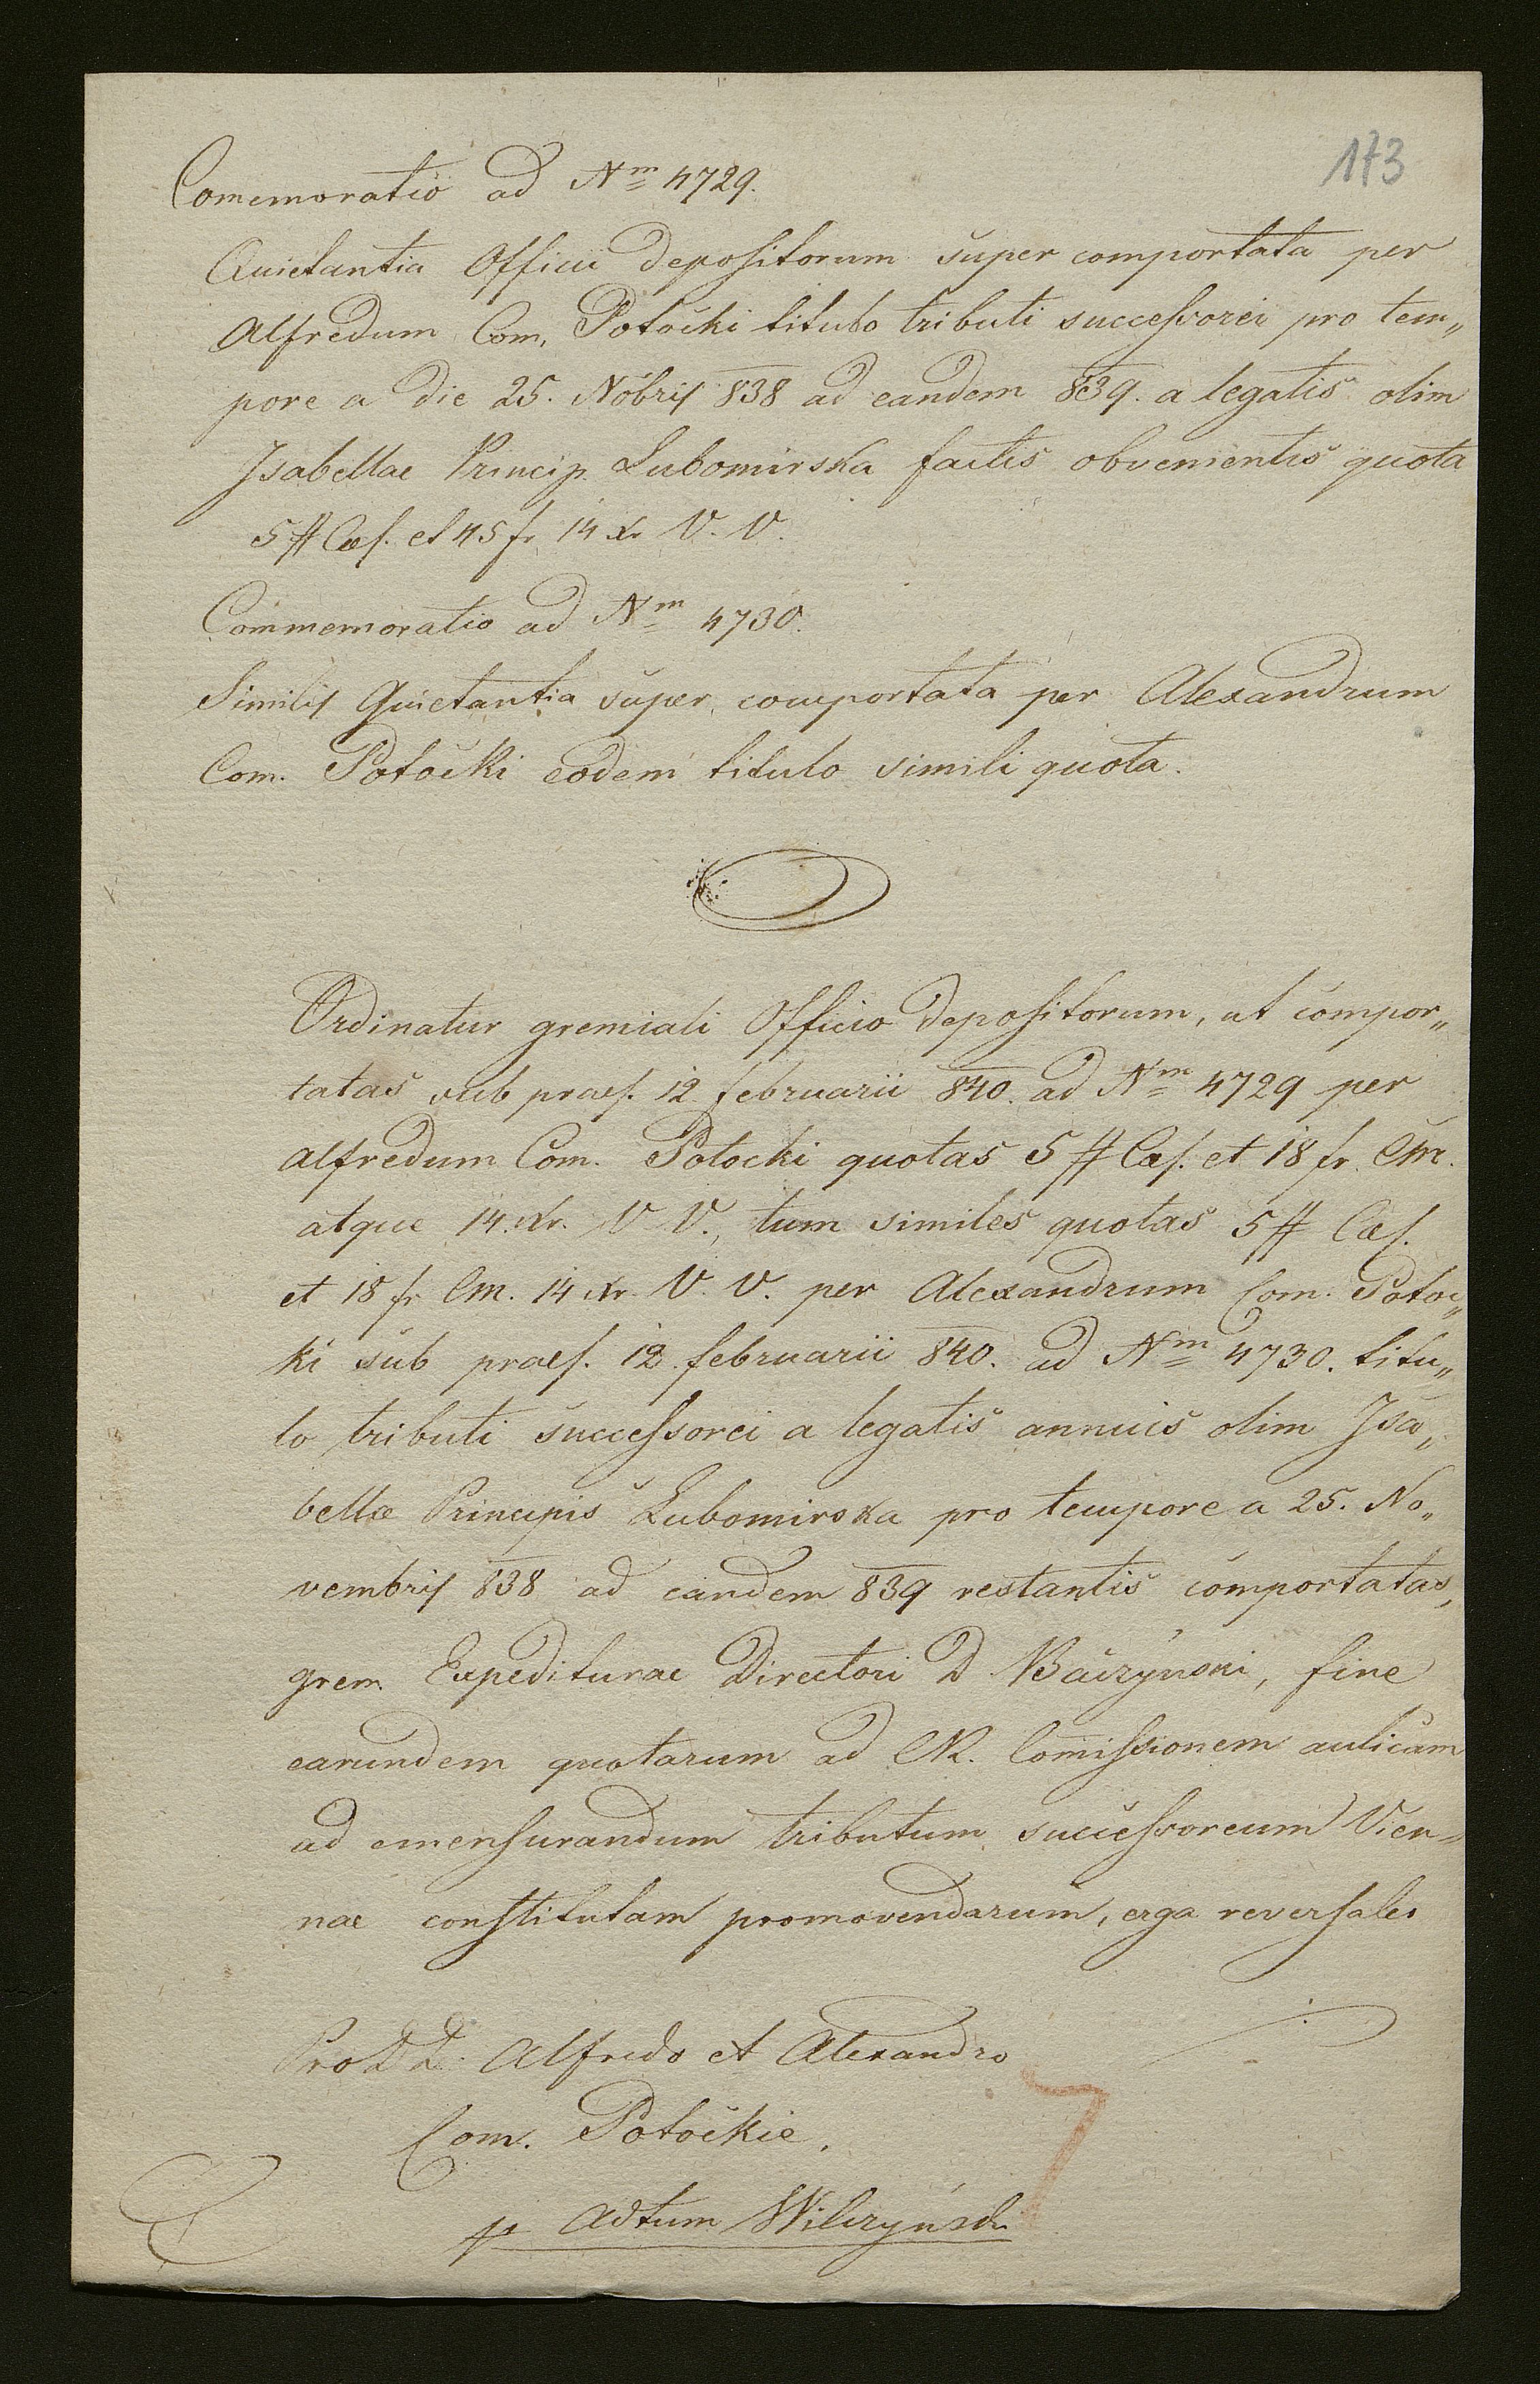 173
Comemoratio ad Nm 4729.
Quietantia Officii depositorum super comportata per
Alfredum Com. Potocki titulo tributi successorei pro tem„
pore a die 25. Nobris 838 ad eandem 839. a legatis olim
Isabellae Princip. Lubomirska factis obvenientis quota
5 # Caes. et 45 fr 14 xr V. V.
Commemoratio ad Nm 4730.
Similis Quietantia super comportata per Alexandrum
Com. Potocki eodem titulo simili quota.
Ordinatur gremiali Officio depositorum, ut compor„
tatas sub praes. 12 februarii 840. ad Nm 4729 per
Alfredum Com. Potocki quotas 5 # Caes. et 18 fr. Cm.
atque 14. xr. V. V., tum similes quotas 5 # Caes.
et 18 fr Cm. 14 xr. V. V. per Alexandrum Com. Potoc„
ki sub praes. 12. februarii 840. ad Nm 4730. titu„
lo tributi successorei a legatis annuis olim Isa„
bellae Principis Lubomirska pro tempore a 25. No„
vembris 838 ad eandem 839 restantis comportatas,
grem. Expediturae Directori D Baczynski, fine
earundem quotarum ad CR. Comissionem aulicam
ad emensurandum tributum successoreum Vien=
nae constitutam promovendarum, erga reversales
Pro DD. Alfredo et Alexandro
Com. Potockie.
p Adtum Wilczyński